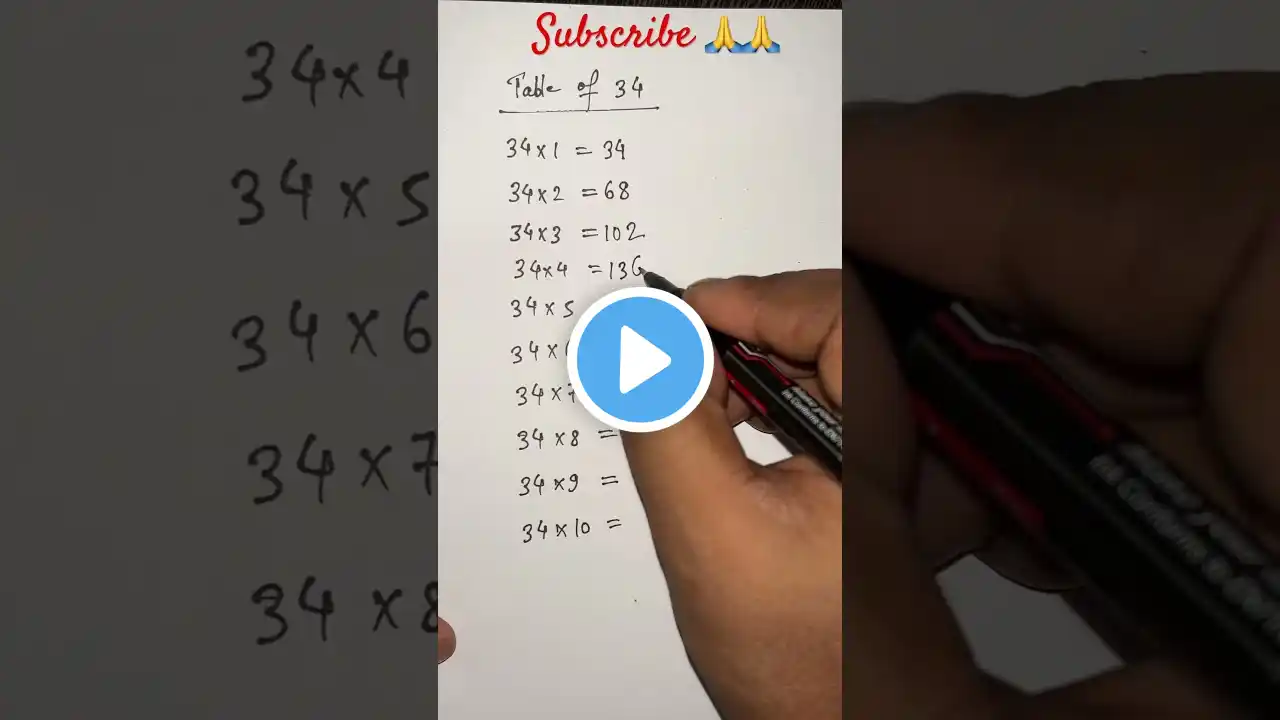 Subscribe 🙏🙏
Table of 34
34×1 = 34
34×2 = 68
34×3 = 102
34×4 = 136
34×5
34×6
34×7
34×8 =
34×9 =
34×10 =
34×4
34×5
34×6
34×7
34×8